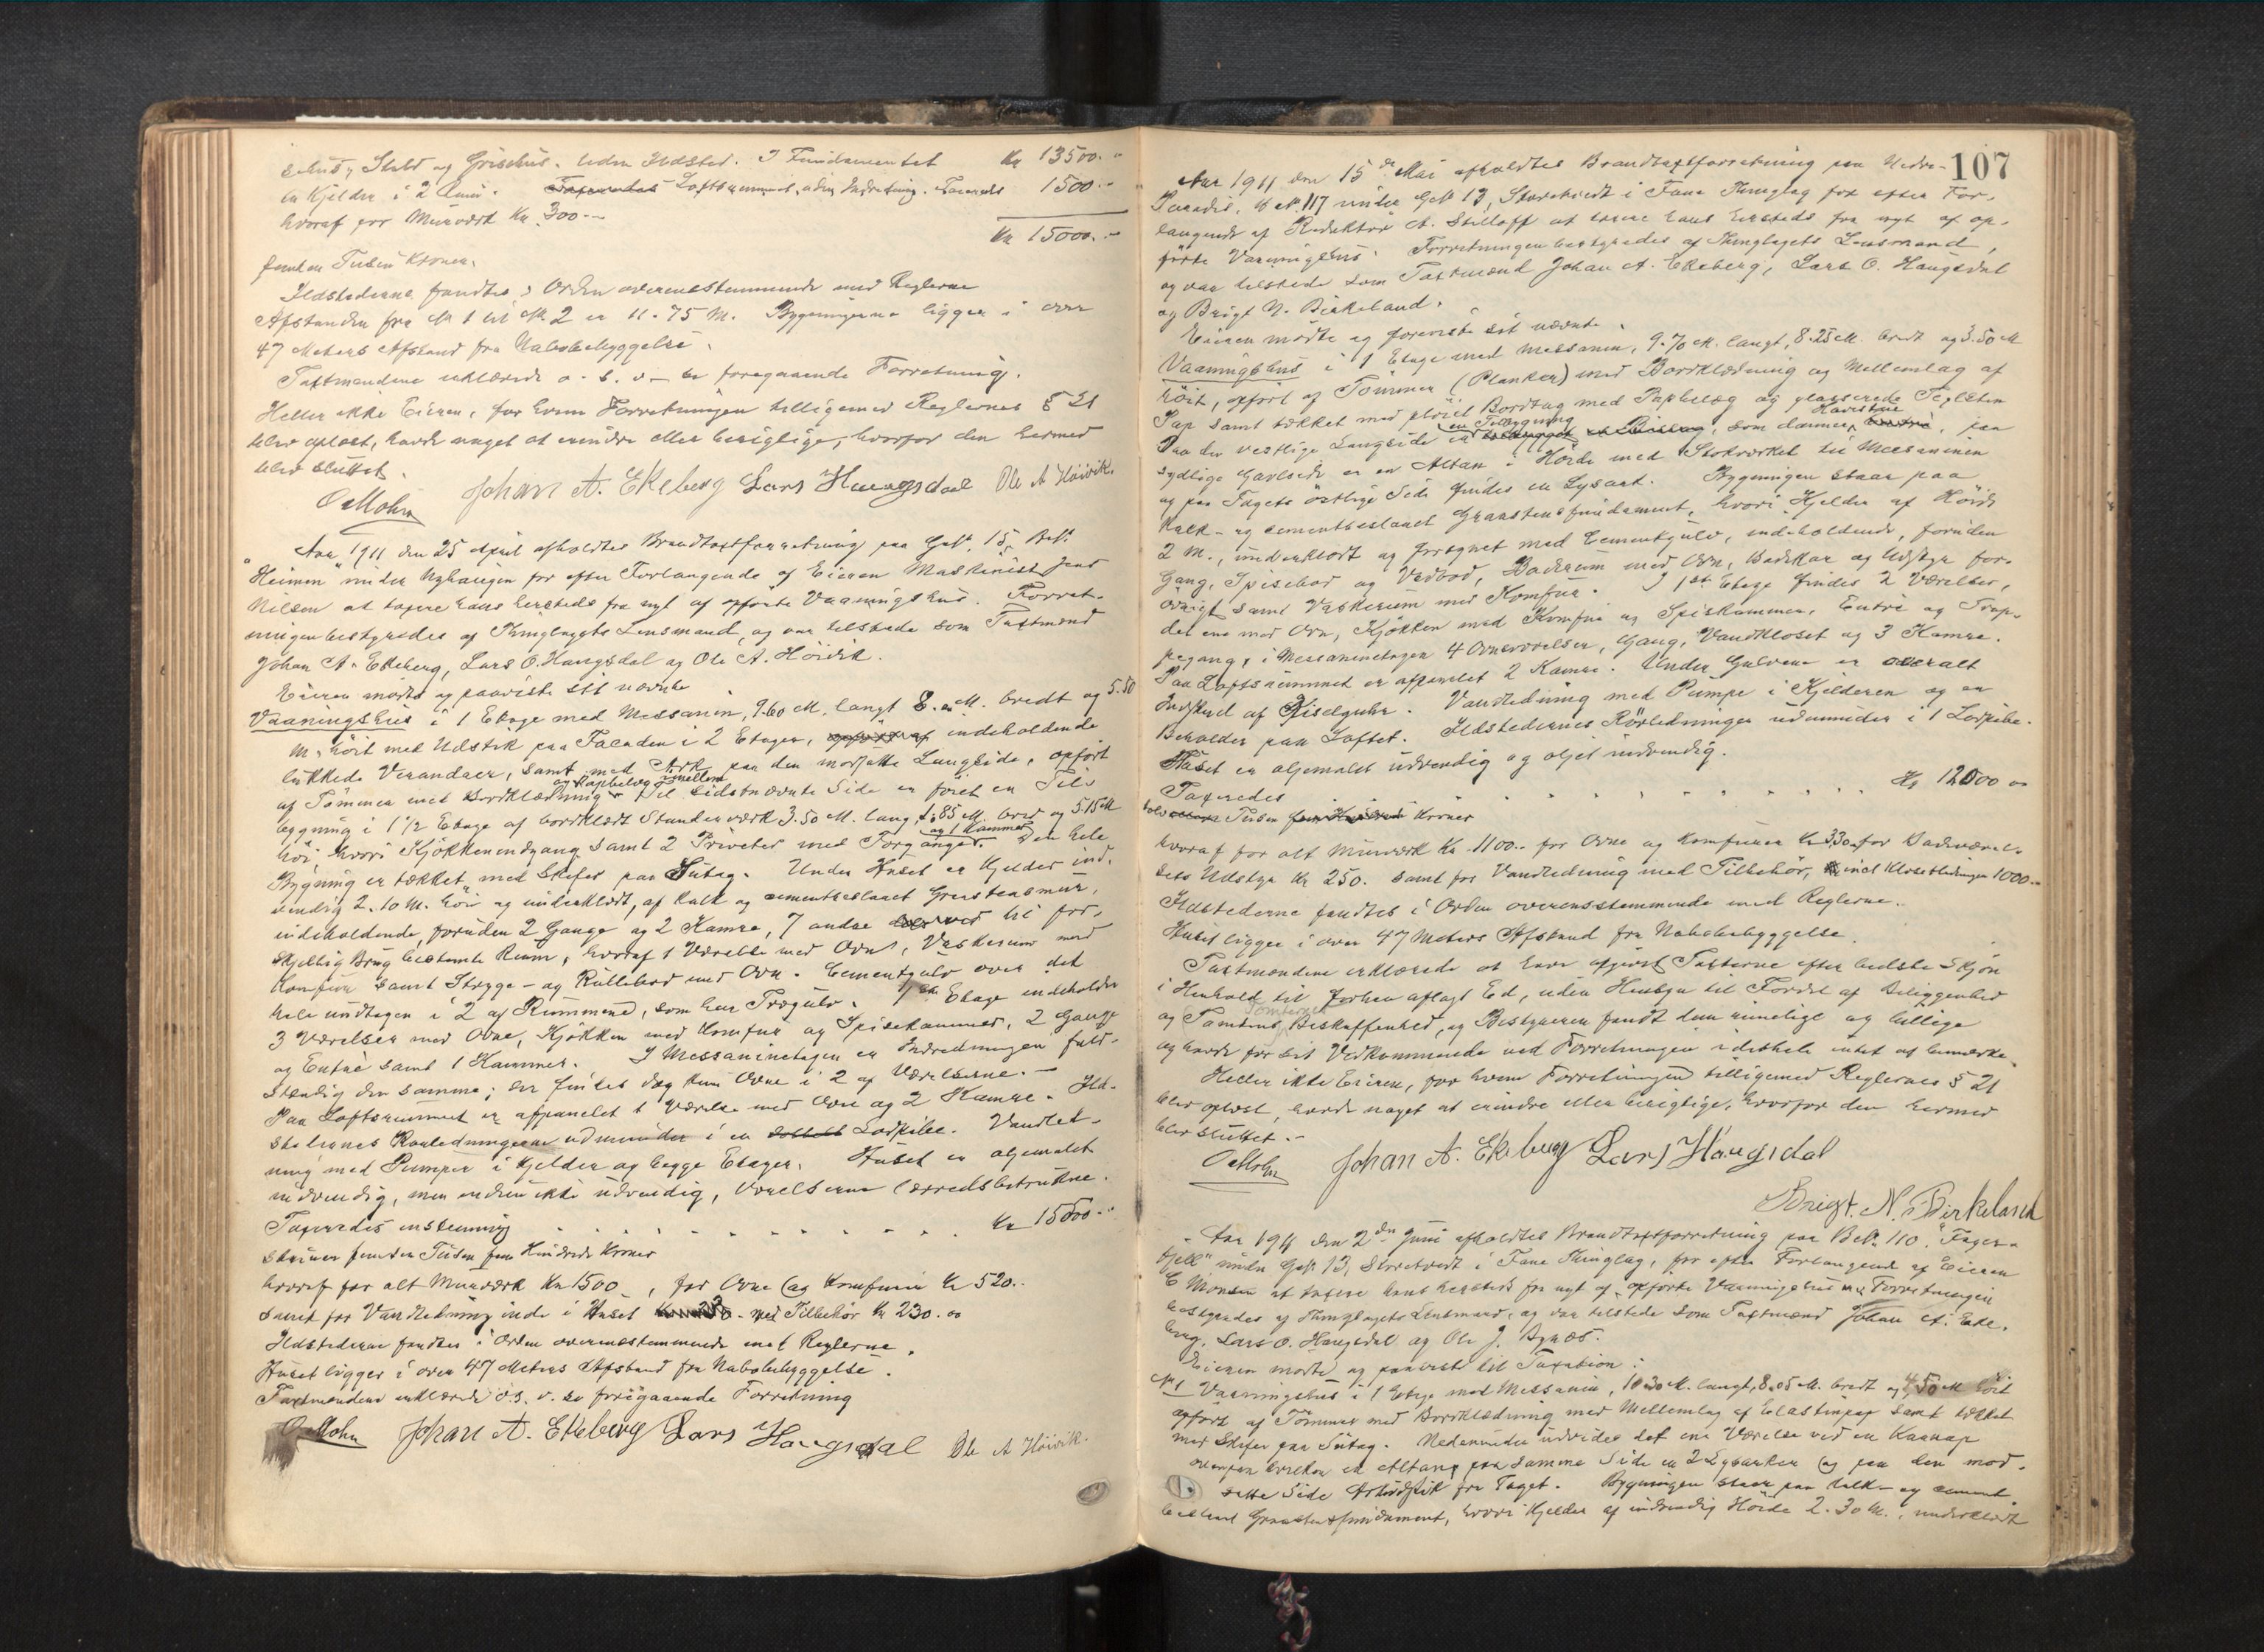 Stald og Grisehus. Uden Ildsted. I Fundamentet Kr 13500.-
en Kjelder i 2 Rum. Loftsrummet uden Indretning. Taxeredes 1500.-
hvoraf for Murværk Kr. 300.-
Kr 15000.-
femten Tusen Kroner.
Ildstederne fandtes i Orden overensstemmende med Reglerne
Afstanden fra № 1 til № 2 er 11.75 M. Bygningerne ligger i over
47 Meters Afstand fra Nabobebyggelse.
Taxtmændene erklærede o. s. v. se foregaaende Forretning.
Heller ikke Eieren, for hvem Forretningen tilligemed Reglernes § 21
blev oplæst, havde noget at erindre eller berigtige, hvorfor den hermed
blev sluttet.
O Mohn Johan A. Ekeberg Lars Haugsdal Ole A Høivik.
Aar 1911 den 25 April afholdtes Brandtaxtforretning paa G№. 15, B№.
"Heimen" under for efter Forlangende af Eieren Maskinist Jens
Nilsen at taxere hans hersteds fra nyt af opførte Vaaningshus. Forret-
ningen bestyredes af Thinglagets Lensmand, og var tilstede som Taxtmænd
Johan A. Ekeberg, Lars O. Haugsdal og Ole A. Høivik.
Eieren mødte og paaviste sit nævnte
Vaaningshus i 1 Etage med Messanin, 9.60 M. langt 8. M. bredt og 5.50
M. høit med Udstik paa Facaden i 2 Etager, opført af indeholdende
lukkede Verandaer, samt med Ark paa den modsatte Langside, opført
og Papbelæg imellem
af Tømmer med Bordklædning. Til sidstnævnte Side er føiet en Til-
bygning i 1 1/2 Etage af bordklædt Standerværk 3.50 M. lang, 1.85 M. bred og 5.15 M
og 1 Kammer
høi, hvori Kjøkkenindgang samt 2 Priveter med Forgange. Den hele
Bygning er tækket med Skifer paa Sutag. Under Huset er Kjelder ind-
vendig 2.10 M. høi og underklædt, af kalk og cementbeslaaet Graastensmur,
indeholdende, foruden 2 Gange og 2 Kamre, 7 andre til for-
skjellig Brug bestemte Rum, hvoraf 1 Værelse med Ovn, Vaskerum med
Komfur samt Stryge- og Rullebod med Ovn. Cementgulv over det
hele undtagen i 2 af Rummene, som har Trægulv. 1ste Etage indeholder
3 Værelser med Ovne, Kjøkken med Komfur og Spisekammer, 2 Gange
og Entré samt 1 Kammer. I Messaninetagen er Indredningen fuld-
stændig den samme; der findes dog kun Ovne i 2 af Værelserne.-
Paa Loftsrummet er afpanelet 1 Værelse med Ovn og 2 Kamre. Ild-
stedernes Rørledninger udmunder i en dobbelt Lodpibe. Vandled-
ning med Pumper i Kjelder og begge Etager. Huset er oljemalet
indvendig, men endnu ikke udvendig, Værelserne lærredsbetrukne.
Taxeredes enstemmig Kr 15500.-
skriver femten Tusen fem Hundrede Kroner
hvoraf for alt Murværk Kr 1500, for Ovne og Komfurer Kr 520.-
samt for Vandledning inde i Huset med Tilbehør Kr 230.00
Ildstederne fandtes i Orden overensstemmende med Reglerne.
Huset ligger i over 47 Meters Afstand fra Nabobebyggelse.
Taxtmændene erklærede o. s. v. se foregaaende Forretning
O Mohn Johan A. Ekeberg Lars Haugsdal Ole A Høivik.
107
Aar 1911 den 15de Mai afholdtes Brandtaxtforretning paa Nedre-
Paradis, B№. 117 under G№ 13, Storetvedt i Fane Thinglag for efter For-
langende af Redaktør A. Stilloff at taxere hans hersteds fra nyt af op-
førte Vaaningshus. Forretningen bestyredes af Thinglagets Lensmand,
og var tilstede som Taxtmænd Johan A. Ekeberg, Lars O. Haugsdal
og Brigt N. Birkeland.
Eieren mødte og foreviste sit nævnte
Vaaningshus i 1 Etage med Messanin, 9.70 M. langt, 8.25 M. bredt og 3.50 M
høit, opført af Tømmer (Planker) med Bordklædning og Mellemlag af
Pap samt tækket med pløiet Bordtag med Papbelæg og glasserede Teglsten
en Tilbygning Havestue
Paa den vestlige Langside er som danner, paa
sydlige Gavlside er en Altan i Høide med Stokværket til Messaninen
og paa Tagets østlige Side findes en Lysark. Bygningen staar paa
kalk- og cementbeslaaet Graastensfundament, hvori Kjelder af Høide
2 M., underklædt og forsynet med Cementgulv, indeholdende, foruden
Gang, Spisebod og Vedbod, Baderum med Ovn, Badekar og Udstyr for-
øvrigt samt Vaskerum med Komfur. I 1ste Etage findes 2 Værelser,
det ene med Ovn, Kjøkken med Komfur og Spiskammer, Entré og Trap-
pegang, i Messaninetagen 4 Ovnsværelser, Gang, Vandkloset og 3 Kamre.
Paa Loftsrummet er afpanelet 2 Kamre. Under Gulvene er overalt
Indskud af Kiselguhr. Vandledning med Pumpe i Kjelderen og en
Beholder paa Loftet. Ildstedernes Rørledninger udmunder i 1 Lodpibe.
Huset er oljemalet udvendig og oljet indvendig.
Taxeredes Kr 12000 00
tolv Tusen Kroner
hvoraf for alt Murværk Kr 1100.- for Ovne og Komfurer Kr 330 for Badeværel-
sets Udstyr Kr 250. samt for Vandledning med Tilbehør, incl Klosetledningen 1000.-
Ildstederne fandtes i Orden overensstemmende med Reglerne.
Huset ligger i over 47 Meters Afstand fra Nabobebyggelse.
Taxtmændene erklærede at have afgivet Taxterne efter bedste Skjøn
i Henhold til forhen aflagt Ed, uden Hensyn til Fordel af Beliggenhed
og Tomtens Beskaffenhed, og Bestyreren fandt dem rimelige og billige
og havde for sit Vedkommende ved Forretningen idethele intet at bemærke.
Heller ikke Eieren, for hvem Forretningen tilligemed Reglernes § 21
blev oplæst, havde noget at erindre eller berigtige, hvorfor den hermed
blev sluttet.-
O Mohn Johan A. Ekeberg Lars Haugsdal
Brigt. N. Birkeland
Aar 1911 den 2den Juni afholdtes Brandtaxtforretning paa B№. 110 "Fager-
fjell" under G№ 13, Storetvedt i Fane Thinglag, for efter Forlangende af Eieren
C Monsen at taxere hans hersteds fra nyt af opførte Vaaningshus. Forretningen
bestyredes af Thinglagets Lensmand, og var tilstede som Taxtmænd Johan A. Eke-
berg, Lars O. Haugsdal og Ole J.
Eieren mødte og paaviste til Taxation:
№ 1 Vaaningshus i 1 Etage med Messanin, 10.30 M. langt, 8.05 M. bredt og 4.50 M høit
opført af Tømmer med Bordklædning med Mellemlag af Elasticpap samt tækket
med Skifer paa Sutag. Nedenunder udvides det ene Værelse ved en Karnap
ovenpaa hvilken en Altan, paa samme Side er 2 Lysarker og paa den mod-
satte Side fra Taget. Bygningen staar paa kalk- og cement-
beslaaet Graastensfundament, hvori Kjelder af indvendig Høide 2.30 M., underklædt